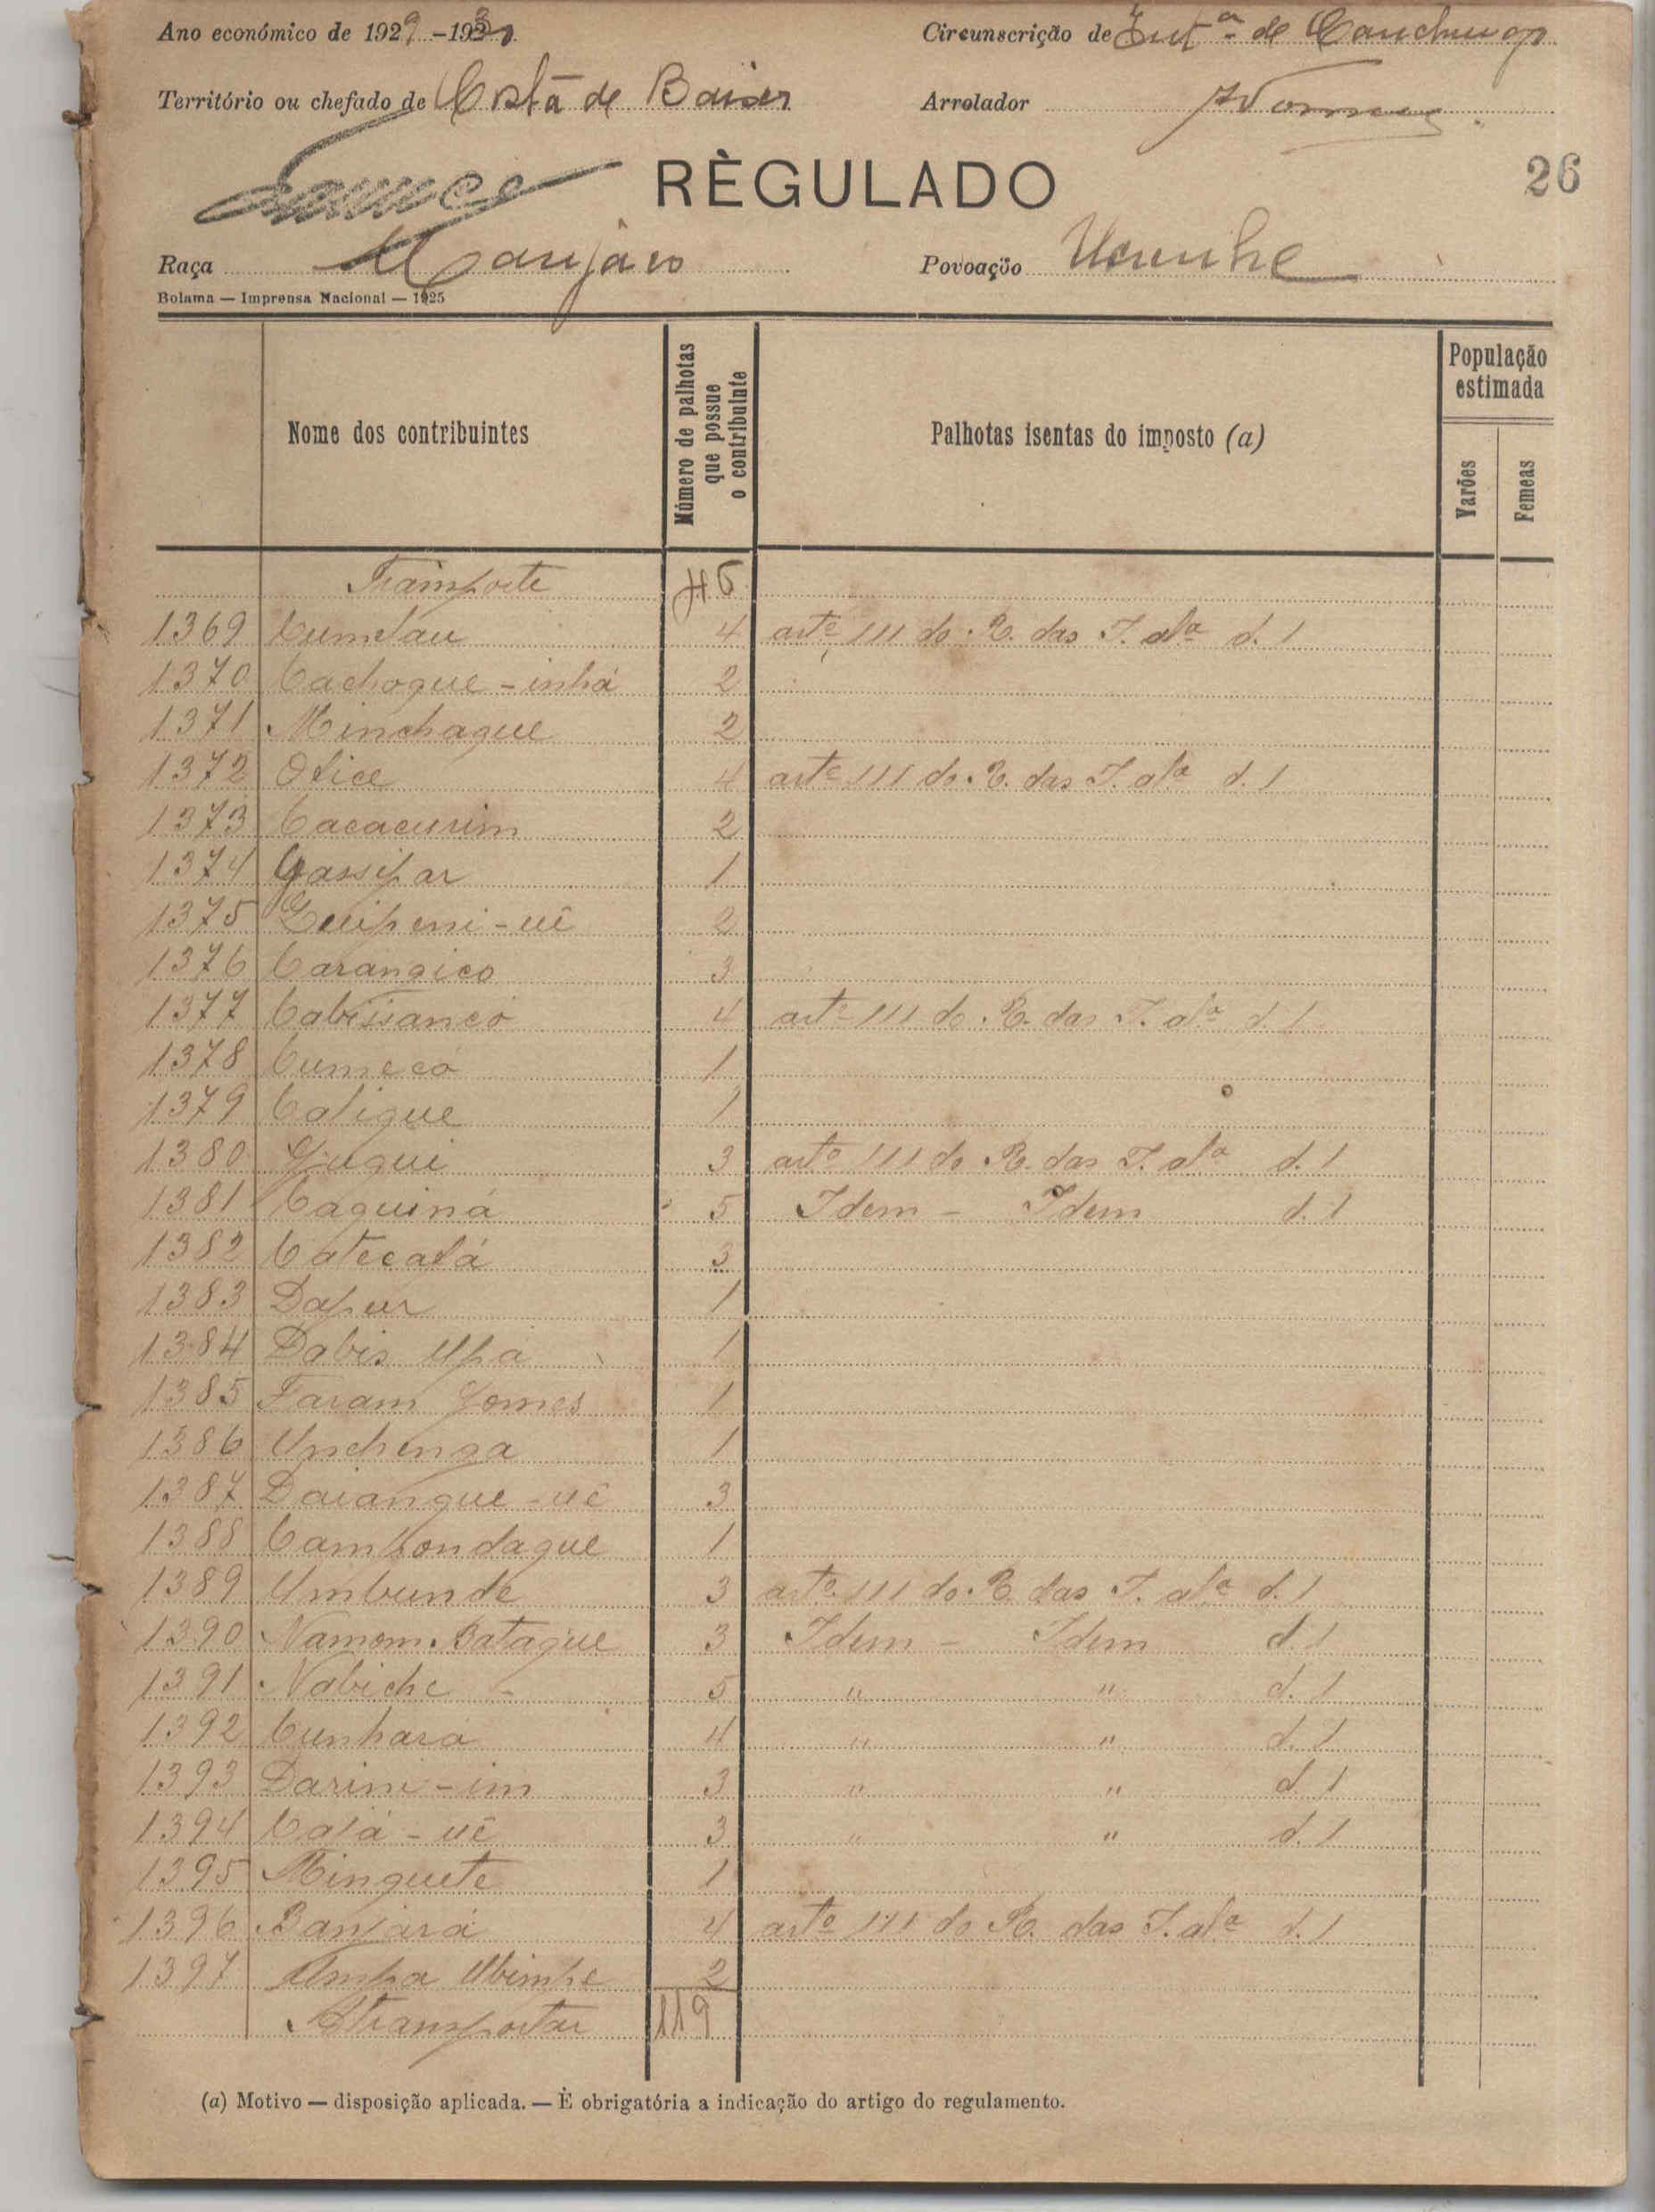 Ano económico de 1929-1930 Circunscrição de Int.ª de Canchungo
Território ou chefado de Costa de Baixo Arrolador
RÈGULADO 26
Raça Manjaco Povoaçõo Ucunhe
Bolama — Imprensa Nacional — 1925
Nome dos contribuintes Número de palhotas que possue o contribuinte Palhotas isentas do imposto (a) População estimada
Varões Femeas
Transporte 46
1369 Cumelau 4 artº 111 do R. das I. alª d. 1
1370 Cachoque-inhá 2
1371 Minchaque 2
1372 Olice 4 artº 111 do R. das I. alª d. 1
1373 Cacacurim 2
1374 Gassipar 1
1375 Quipeni-uê 2
1376 Carangico 3
1377 Cabissancó 4 artº 111 do R. das I. alª d. 1
1378 Cumecó 1
1379 Calique 1
1380 Gjugui 3 artº 111 do R. das I. alª d. 1
1381 Caquiná 5 Idem - Idem d. 1
1382 Catecalá 3
1383 Dapur 1
1384 Dabis Upá 1
1385 Faram Gomes 1
1386 Unchenga 1
1387 Daiangue-uê 3
1388 Campondaque 1
1389 Umbunde 3 artº 111 do R. das I. alª d. 1
1390 Namom Bataque 3 Idem - Idem d. 1
1391 Nabiche - 5 " " d. 1
1392 Cunhará 4 " " d. 1
1393 Darini-im 3 " " d. 1
1394 Cajá-uê 3 " " d. 1
1395 Minguete 1
1396 Banjará 4 artº 111 do R. das I. alª d. 1
1397 Ampa Ubimpe 2
A transportar 119
(a) Motivo — disposição aplicada. — È obrigatória a indicação do artigo do regulamento.